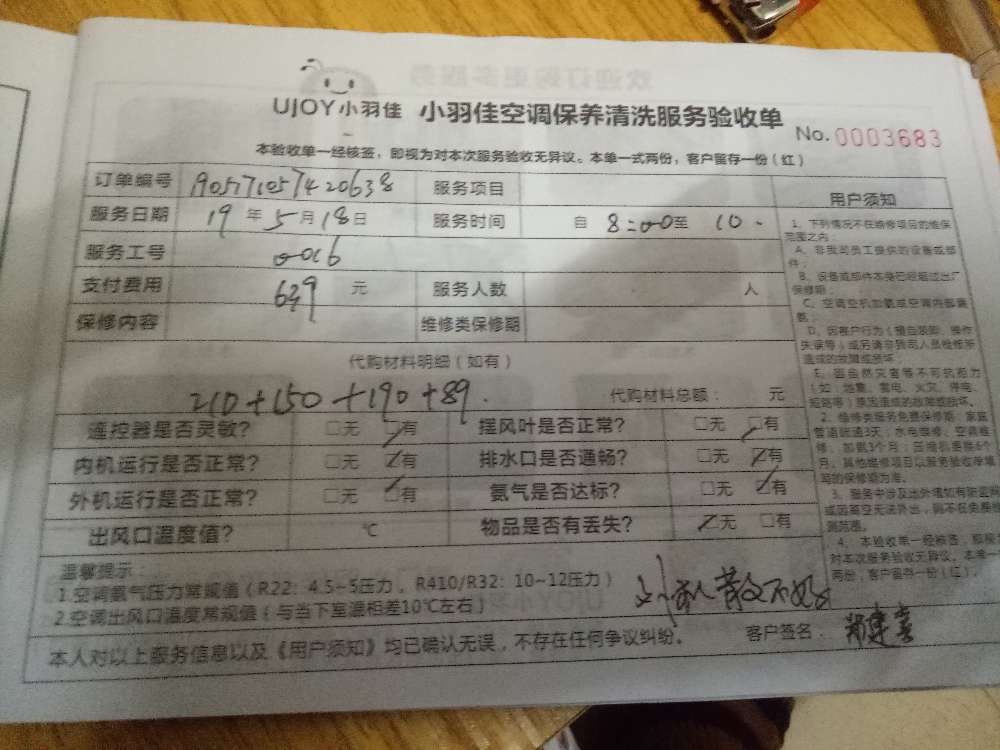 UJOY小羽佳 小羽佳空调保养清洗服务验收单 No. 0003683
本验收单一经核签，即视为对本次服务验收无异议。本单一式两份，客户留存一份（红）
订单编号 服务项目
服务日期 19 年 5 月 18 日 服务时间 自 8:00 至 10
服务工号 0016
支付费用 639 元 服务人数 人
保修内容 维修类保修期
代购材料明细（如有）
210+150+190+89. 代购材料总额： 元
遥控器是否灵敏? □无 □有 摆风叶是否正常? □无 □有
内机运行是否正常? □无 □有 排水口是否通畅? □无 □有
外机运行是否正常? □无 □有 氨气是否达标? □无 □有
出风口温度值? ℃ 物品是否有丢失? □无 □有
温馨提示：
1.空调氨气压力常规值（R22：4.5~5压力，R410/R32：10~12压力）
2.空调出风口温度常规值（与当下室温相差10℃左右）
本人对以上服务信息以及《用户须知》均已确认无误，不存在任何争议纠纷。 客户签名：
用户须知
1、下列情况不在维修项目的维保
范围之内：
A、非我司员工提供的设备或部
件；
B、设备或部件本身已经超过出厂
保修期；
C、空调空机加氨或空调内部
D、因客户行为（擅自拆卸、操作
失误等）或另请非我司人员检修所
造成的故障或损坏；
E、因自然灾害等不可抗拒力
（如：地震、雷电、火灾、停电、
短路等）原因造成的故障或损坏。
2、维修类服务免费保修期：家庭
管道疏通3天，水电维修、空调维
修、加氨3个月；压缩机更换6个
月，其他维修项目以服务验收单填
写的保修期为准。
3、服务中涉及出外墙如有防盗网
或因高空无法外出，则不在免费检
测范围。
4、本验收单一经核签，即视为
对本次服务验收无异议，本单一式
两份，客户留存一份（红）。